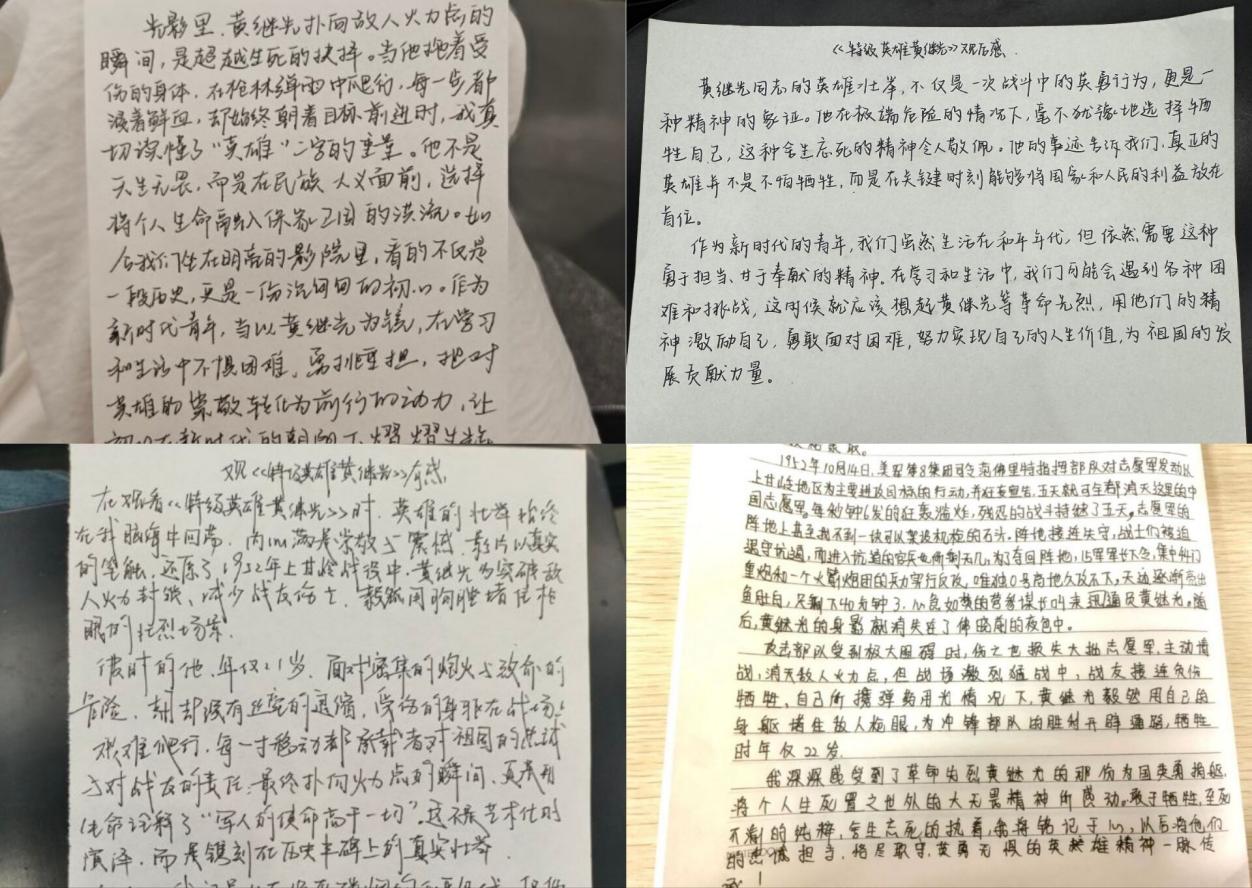 光影里，黄继光扑向敌人火力点的
瞬间，是超越生死的抉择。当他拖着受
伤的身体，在枪林弹雨中爬行，每一步都
浸着鲜血，却始终朝着目标前进时，我真
切读懂了“英雄”二字的重量。他不是
天生无畏，而是在民族大义面前，选择
将个人生命融入保家卫国的洪流。如
今我们坐在明亮的影院里，看的不仅是
一段历史，更是一份沉甸甸的初心。作为
新时代青年，当以黄继光为镜，在学习
和生活中不惧困难、勇挑重担，把对
英雄的崇敬转化为前行的动力，让
初心在新时代的朝阳下熠熠生辉
《特级英雄黄继光》观后感.
黄继光同志的英雄壮举，不仅是一次战斗中的英勇行为，更是一
种精神的象征。他在极端危险的情况下，毫不犹豫地选择牺
牲自己，这种舍生忘死的精神令人敬佩。他的事迹告诉我们，真正的
英雄并不是不怕牺牲，而是在关键时刻能够将国家和人民的利益放在
首位。
作为新时代的青年，我们虽然生活在和平年代，但依然需要这种
勇于担当、甘于奉献的精神。在学习和生活中，我们可能会遇到各种困
难和挑战，这时候就应该想起黄继光等革命先烈，用他们的精
神激励自己，勇敢面对困难，努力实现自己的人生价值，为祖国的发
展贡献力量。
观《特级英雄黄继光》有感
在观看《特级英雄黄继光》时，英雄的壮举始终
在我脑海中回荡，内心满是崇敬与震撼。影片以真实
的笔触，还原了1952年上甘岭战役中，黄继光为突破敌
人火力封锁、减少战友伤亡，毅然用胸膛堵住枪
眼的壮烈场景.
彼时的他，年仅21岁，面对密集的炮火与致命的
危险，却没有丝毫的退缩，受伤的身躯在战场上
艰难爬行，每一寸移动都承载着对祖国的忠诚
与对战友的责任.最终扑向火力点的瞬间，更是用
生命诠释了“军人的使命高于一切”.这不是艺术化的
演绎，而是镌刻在历史丰碑上的真实壮举
1952年10月14日，美军第8集团司令范佛里特指挥部队对志愿军发动以
上甘岭地区为主要进攻目标的行动，并狂妄宣告，五天就可全部消灭这里的中
国志愿军，每秒钟6发的狂轰滥炸，残忍的战斗持续了五天，志愿军的
阵地上甚至找不到一块可以架设机枪的石头，阵地接连失守，战士们被迫
退守坑道，而进入坑道的官兵也所剩无几，为夺回阵地，
重炮和一个火箭炮团的兵力实行反攻，唯独0号高地久攻不下，天边逐渐亮出
鱼肚白，只剩下40分钟了，心急如焚的营参谋长叫来通讯员黄继光，随
后，黄继光的身影就消失在了佛晓前的夜色中。
攻击部队受到极大阻碍时，伤亡也损失大批志愿军，主动请
战，消灭敌人火力点，但战场激烈猛战中，战友接连负伤
牺牲，自己所携弹药用光情况下，黄继光毅然用自己的
身躯堵住敌人枪眼，为冲锋部队的胜利开辟通路，牺牲
时年仅22岁.
我深深感受到了革命先烈黄继光的那份为国英勇捐躯，
将个人生死置之度外的大无畏精神所感动，敢于牺牲，至死
不渝的纯粹，舍生忘死的执着，我将铭记于心，以后将他们
的忠诚担当，恪尽职守，英勇无惧的英雄精神一脉传
承！